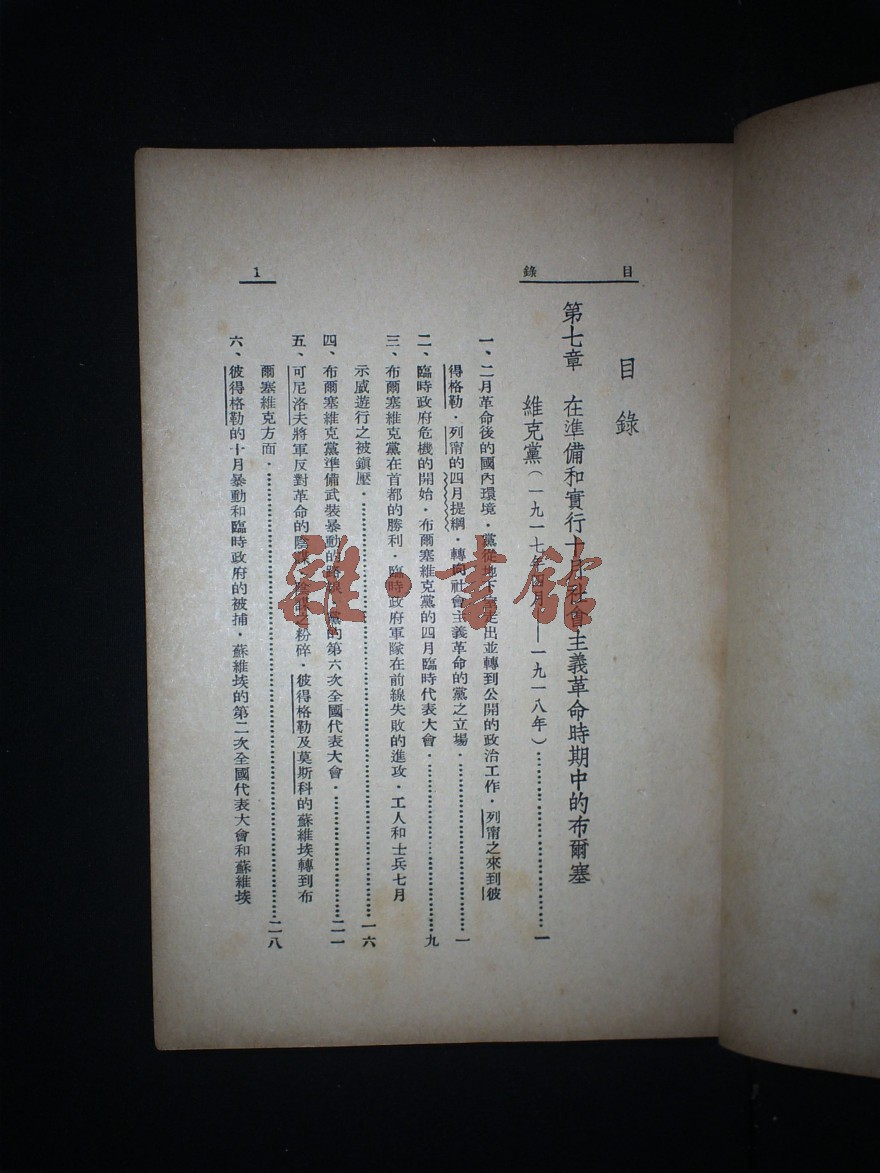 目錄
1
目錄
第七章 在準備和實行十月社會主義革命時期中的布爾塞
維克黨(一九一七年四月——一九一八年)……………一
一、二月革命後的國內環境·黨從地下走出並轉到公開的政治工作·列甯之來到彼
得格勒·列甯的四月提綱·轉向社會主義革命的黨之立場·……………一
二、臨時政府危機的開始·布爾塞維克黨的四月臨時代表大會·……………九
三、布爾塞維克黨在首都的勝利·臨時政府軍隊在前線失敗的進攻·工人和士兵七月
示威遊行之被鎮壓·……………一六
四、布爾塞維克黨準備武裝暴動的路線·黨的第六次全國代表大會·……………二一
五、可尼洛夫將軍反對革命的陰謀·陰謀之粉碎·彼得格勒及莫斯科的蘇維埃轉到布
爾塞維克方面·……………二八
六、彼得格勒的十月暴動和臨時政府的被捕·蘇維埃的第二次全國代表大會和蘇維埃
雜·書館